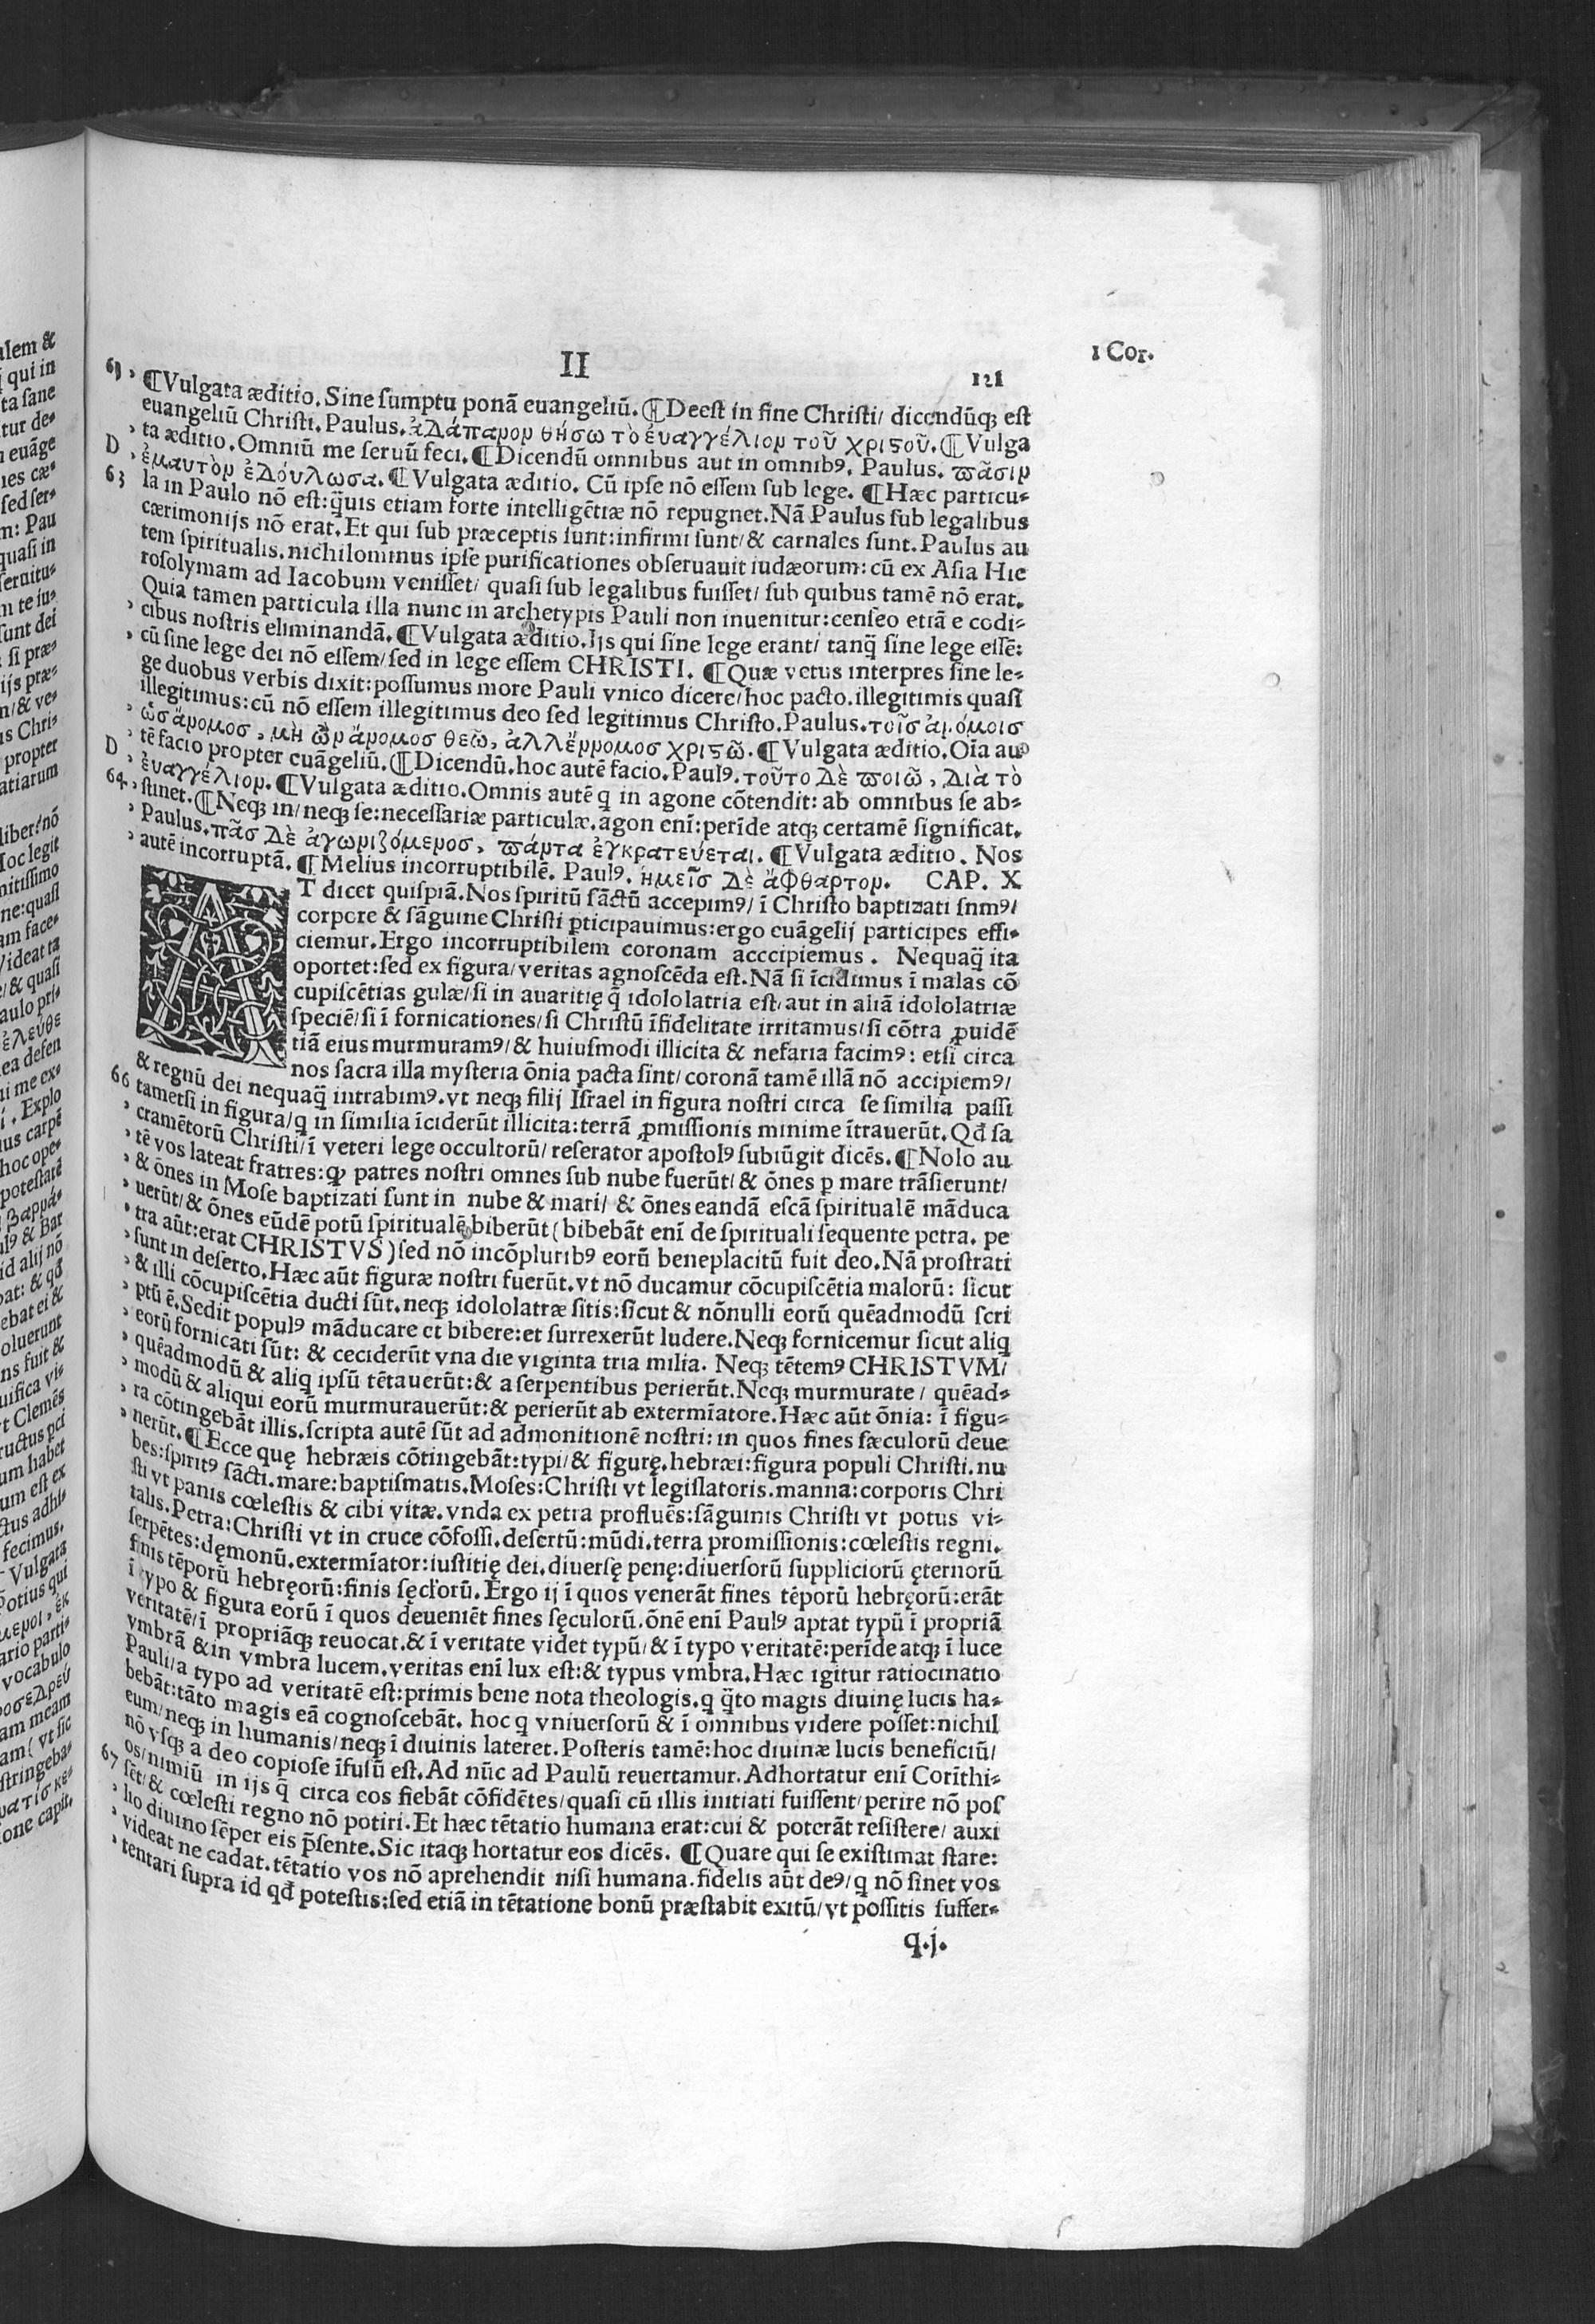 II
121
1 Cor.
61 ¶Vulgata æditio. Sine sumptu ponā euangeliū. ¶Deest in fine Christi/ dicendūq; est
euangeliū Christi. Paulus. ἀδάπανον θήσω τὸ ἐυαγγέλιον τοῦ χριϛοῦ. ¶Vulga
ta æditio. Omniū me seruū feci. ¶Dicendū omnibus aut in omnibꝰ. Paulus. πᾶσιν
D ἐμαυτὸν ἐδόυλωσα. ¶Vulgata æditio. Cū ipse nō essem sub lege. ¶Hæc particu-
63 la in Paulo nō est: q̄uis etiam forte intelligētiæ nō repugnet. Nā Paulus sub legalibus
cærimonijs nō erat. Et qui sub præceptis sunt: infirmi sunt/ & carnales sunt. Paulus au
tem spiritualis. nichilominus ipse purificationes obseruauit iudæorum: cū ex Asia Hie
rosolymam ad Iacobum venisset/ quasi sub legalibus fuisset/ sub quibus tamē nō erat.
Quia tamen particula illa nunc in archetypis Pauli non inuenitur: censeo etiā e codi-
cibus nostris eliminandā. ¶Vulgata æditio. Ijs qui sine lege erant/ tanq̄ sine lege essē:
cū sine lege dei nō essem/ sed in lege essem CHRISTI. ¶Quæ vetus interpres sine le-
ge duobus verbis dixit: possumus more Pauli vnico dicere/ hoc pacto. illegitimis quasi
illegitimus: cū nō essem illegitimus deo sed legitimus Christo. Paulus. τοῖσ ἀνόμοισ
ὡσ ἄνομοσ, μὴ ὢν ἄνομοσ θεῶ, ἀλλ ἔννομοσ χριϛῶ. ¶Vulgata æditio. Oīa au
tē facio propter euāgeliū. ¶Dicendū. hoc autē facio. Paulꝰ. τοῦτο δὲ ποιῶ, διὰ τὸ
D ἐυαγγέλιον. ¶Vulgata æditio. Omnis autē q in agone cōtendit: ab omnibus se ab-
64 stinet. ¶Neq; in/ neq; se: necessariæ particulæ. agon enī: perīde atq; certamē significat.
Paulus. πᾶσ δὲ ἀγωνιζόμενοσ, πάντα ἐγκρατεύεται. ¶Vulgata æditio. Nos
autē incorruptā. ¶Melius incorruptibilē. Paulꝰ. ἡμεῖσ δὲ ἄφθαρτον. CAP. X
AT dicet quispiā. Nos spiritū sāctū accepimꝰ/ ī Christo baptizati snmꝰ/
corpore & sāguine Christi ꝑticipauimus: ergo euāgelij participes effi-
ciemur. Ergo incorruptibilem coronam acccipiemus. Nequaq̄ ita
oportet: sed ex figura/ veritas agnoscēda est. Nā si īcidimus ī malas cō
cupiscētias gulæ/ si in auaritię q̄ idololatria est/ aut in aliā idololatriæ
speciē/ si ī fornicationes/ si Christū īfidelitate irritamus/ si cōtra ꝓuidē
tiā eius murmuramꝰ/ & huiusmodi illicita & nefaria facimꝰ: etsi circa
nos sacra illa mysteria ōnia pacta sint/ coronā tamē illā nō accipiemꝰ/
& regnū dei nequaq̄ intrabimꝰ. vt neq; filij Israel in figura nostri circa se similia passi
66 tametsi in figura/ q in similia īciderūt illicita: terrā ꝓmissionis minime ītrauerūt. Qđ sa
cramētorū Christi/ ī veteri lege occultorū/ reserator apostolꝰ subiūgit dicēs. ¶Nolo au
tē vos lateat fratres: ꝙ patres nostri omnes sub nube fuerūt/ & ōnes ꝑ mare trāsierunt/
& ōnes in Mose baptizati sunt in nube & mari/ & ōnes eandā escā spiritualē māduca
uerūt/ & ōnes eūdē potū spiritualē biberūt (bibebāt enī de spirituali sequente petra. pe
tra aūt: erat CHRISTVS) sed nō incōpluribꝰ eorū beneplacitū fuit deo. Nā prostrati
sunt in deserto. Hæc aūt figuræ nostri fuerūt. vt nō ducamur cōcupiscētia malorū: sicut
& illi cōcupiscētia ducti sūt. neq; idololatræ sitis: sicut & nōnulli eorū quēadmodū scri
ptū ē. Sedit populꝰ māducare et bibere: et surrexerūt ludere. Neq; fornicemur sicut aliq
eorū fornicati sūt: & ceciderūt vna die viginta tria milia. Neq; tētemꝰ CHRISTVM/
quēadmodū & aliq ipsū tētauerūt: & a serpentibus perierūt. Neq; murmurate/ quēad-
modū & aliqui eorū murmurauerūt: & perierūt ab extermīatore. Hæc aūt ōnia: ī figu-
ra cōtingebāt illis. scripta autē sūt ad admonitionē nostri: in quos fines sæculorū deue
nerūt. ¶Ecce quę hebræis cōtingebāt: typi/ & figurę. hebræi: figura populi Christi. nu
bes: spiritꝰ sācti. mare: baptismatis. Moses: Christi vt legislatoris. manna: corporis Chri
sti vt panis cœlestis & cibi vitæ. vnda ex petra profluēs: sāguinis Christi vt potus vi-
talis. Petra: Christi vt in cruce cōfossi. desertū: mūdi. terra promissionis: cœlestis regni.
serpētes: dęmonū. extermīator: iustitię dei. diuersę penę: diuersorū suppliciorū ęternorū
finis tēporū hebręorū: finis sęcl'orū. Ergo ij ī quos venerāt fines tēporū hebręorū: erāt
ī typo & figura eorū ī quos deueniēt fines sęculorū. ōnē enī Paulꝰ aptat typū ī propriā
veritatē/ ī propriāq; reuocat. & ī veritate videt typū/ & ī typo veritatē: perīde atq; ī luce
vmbrā & in vmbra lucem. veritas enī lux est: & typus vmbra. Hæc igitur ratiocinatio
Pauli/ a typo ad veritatē est: primis bene nota theologis. q q̄to magis diuinę lucis ha-
bebāt: tāto magis eā cognoscebāt. hoc q vniuersorū & ī omnibus videre posset: nichil
eum/ neq; in humanis/ neq; ī diuinis lateret. Posteris tamē: hoc diuinæ lucis beneficiū/
nō vsq; a deo copiose īfusū est. Ad nūc ad Paulū reuertamur. Adhortatur enī Corīthi-
os/ nimiū in ijs q̄ circa eos fiebāt cōfidētes/ quasi cū illis initiati fuissent/ perire nō pos
67 sēt/ & cœlesti regno nō potiri. Et hæc tētatio humana erat: cui & poterāt resistere/ auxi
lio diuino sēper eis p̄sente. Sic itaq; hortatur eos dicēs. ¶Quare qui se existimat stare:
videat ne cadat. tētatio vos nō aprehendit nisi humana. fidelis aūt deꝰ/ q nō sinet vos
tentari supra id qđ potestis: sed etiā in tētatione bonū præstabit exitū/ vt possitis suffer-
q.j.